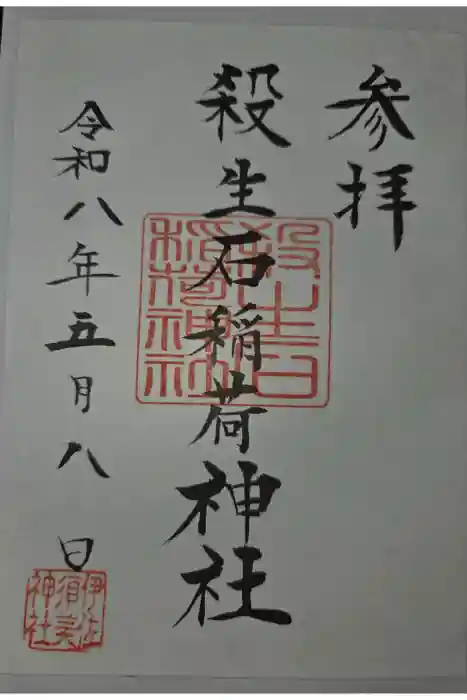 参拝
殺生石稲荷神社
殺生石
稲荷神社
令和八年五月八日
伊佐
須美
神社